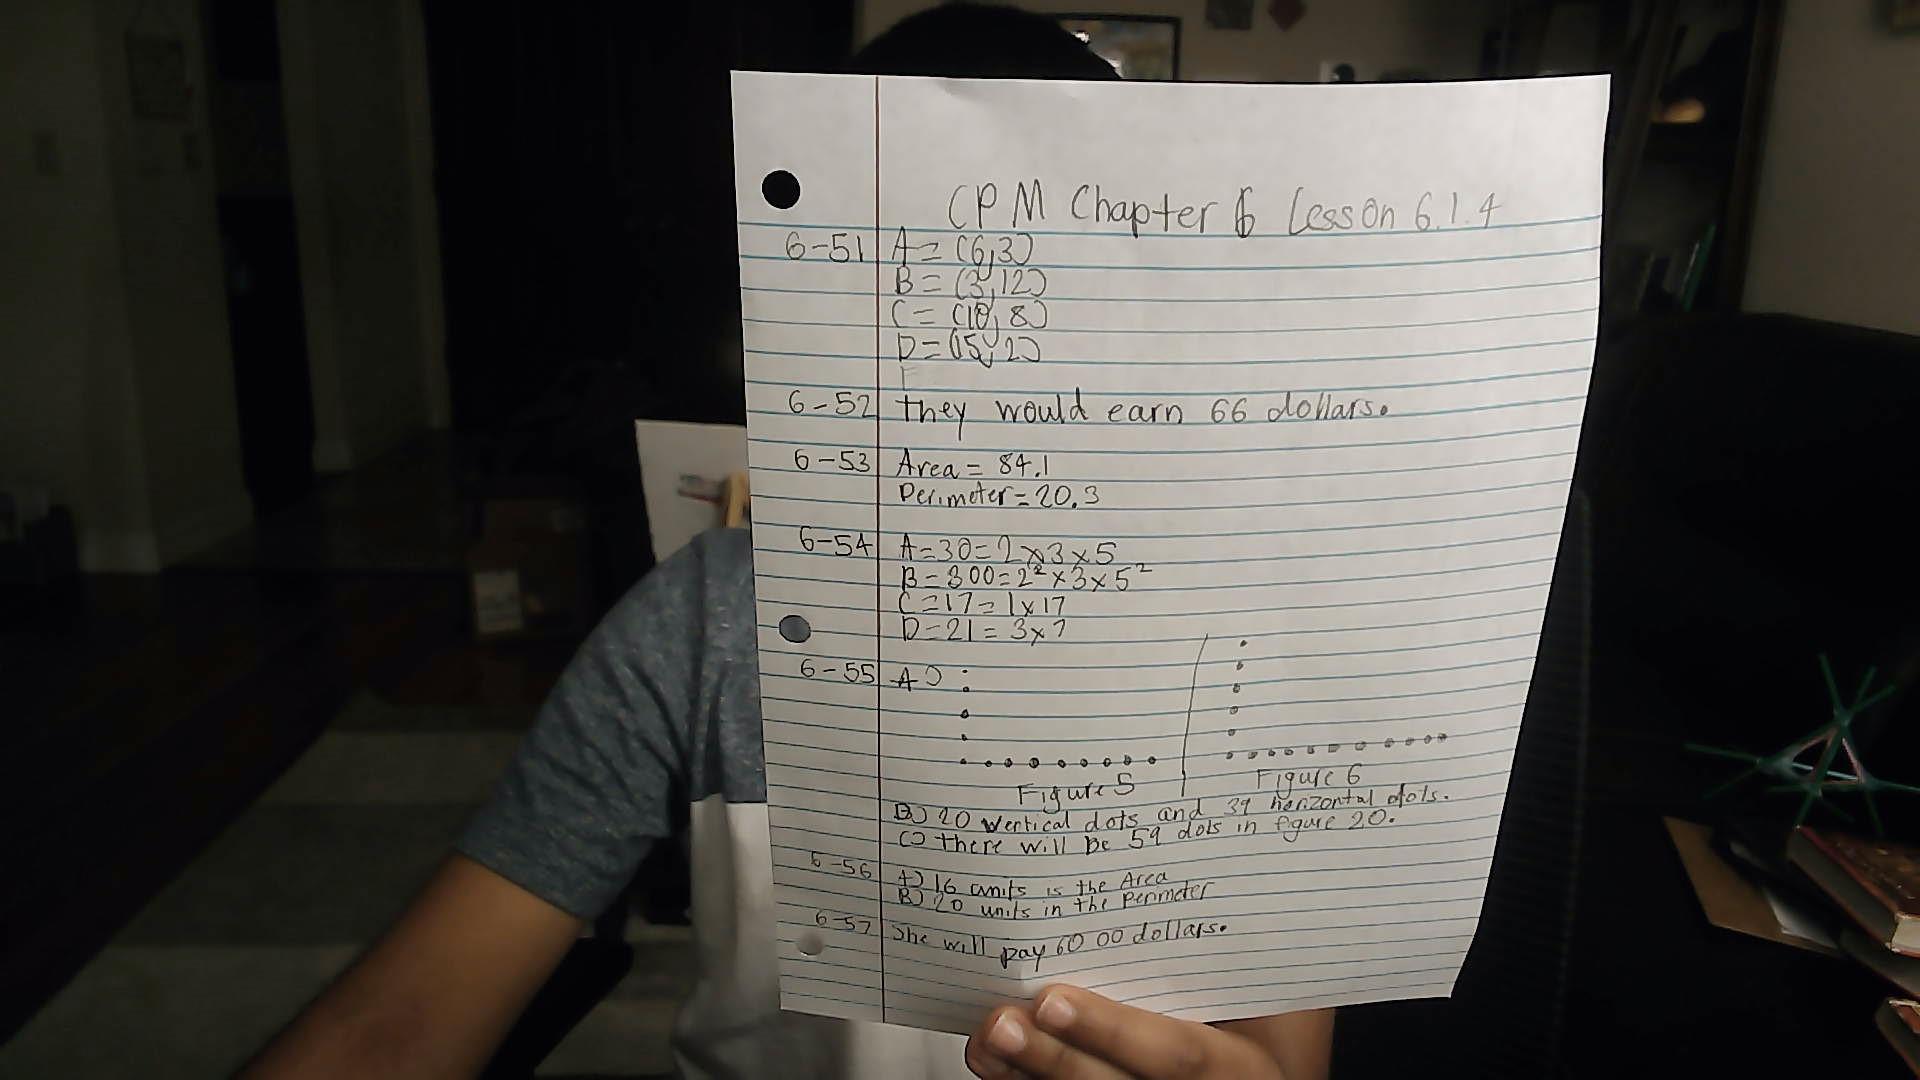 CPM Chapter 6 Lesson 6.1.4
6-51 A = (6,3)
B = (3,12)
C = (10,8)
D = (15,2)
6-52 they would earn 66 dollars.
6-53 Area = 84.1
Perimeter = 20.3
6-54 A = 30 = 2 x 3 x 5
B = 300 = 2² x 3 x 5²
C = 17 = 1 x 17
D = 21 = 3 x 7
6-55 A)
Figure 5 Figure 6
B) 20 vertical dots and 39 horizontal dots.
C) there will be 59 dots in figure 20.
6-56 A) 16 units is the Area
B) 20 units in the perimeter
6-57 She will pay 60 00 dollars.